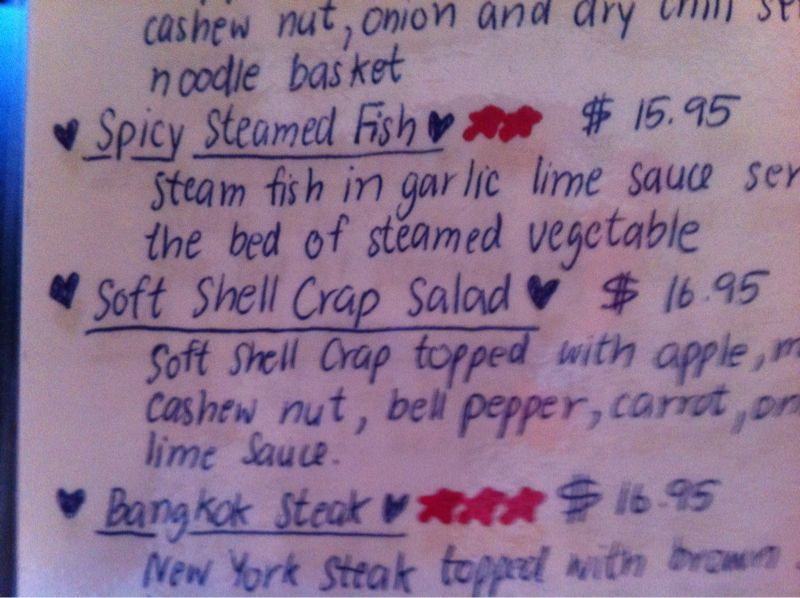 cashew nut, onion and dry chili
noodle basket
Spicy Steamed Fish $ 15.95
Steam fish in garlic lime sauce ser
the bed of steamed vegetable
Soft Shell Crap Salad $ 16.95
Soft Shell Crap topped with apple, m
cashew nut, bell pepper, carrot, on
lime sauce.
Bangkok Steak $ 16.95
New York steak topped with brown